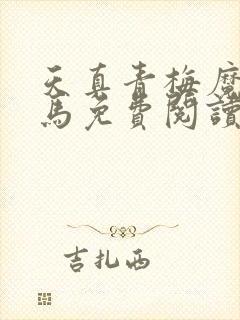 天真青梅魔
馬免費閱讀
吉扎西